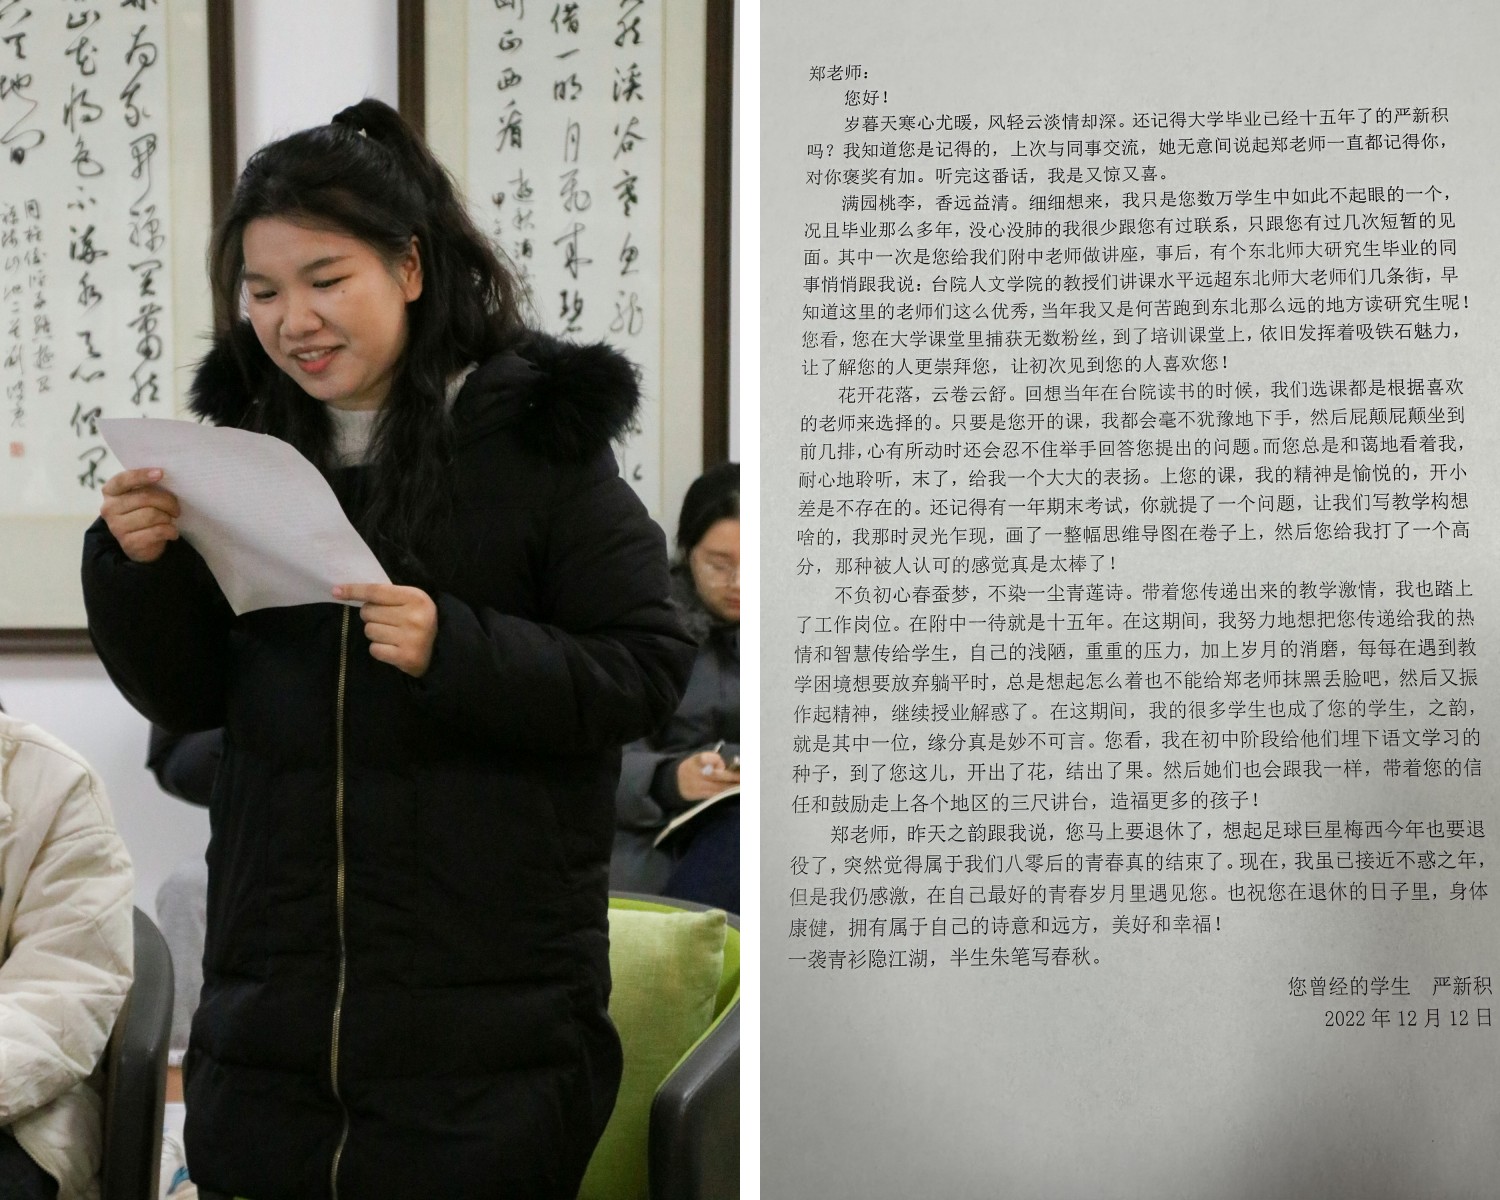 断正西看
借一明月飞来碧
溪谷寒鱼龙
郑老师：
您好！
岁暮天寒心尤暖，风轻云淡情却深。还记得大学毕业已经十五年了的严新积
吗？我知道您是记得的，上次与同事交流，她无意间说起郑老师一直都记得你，
对你褒奖有加。听完这番话，我是又惊又喜。
满园桃李，香远益清。细细想来，我只是您数万学生中如此不起眼的一个，
况且毕业那么多年，没心没肺的我很少跟您有过联系，只跟您有过几次短暂的见
面。其中一次是您给我们附中老师做讲座，事后，有个东北师大研究生毕业的同
事悄悄跟我说：台院人文学院的教授们讲课水平远超东北师大老师们几条街，早
知道这里的老师们这么优秀，当年我又是何苦跑到东北那么远的地方读研究生呢！
您看，您在大学课堂里捕获无数粉丝，到了培训课堂上，依旧发挥着吸铁石魅力，
让了解您的人更崇拜您，让初次见到您的人喜欢您！
花开花落，云卷云舒。回想当年在台院读书的时候，我们选课都是根据喜欢
的老师来选择的。只要是您开的课，我都会毫不犹豫地下手，然后屁颠屁颠坐到
前几排，心有所动时还会忍不住举手回答您提出的问题。而您总是和蔼地看着我，
耐心地聆听，末了，给我一个大大的表扬。上您的课，我的精神是愉悦的，开小
差是不存在的。还记得有一年期末考试，你就提了一个问题，让我们写教学构想
啥的，我那时灵光乍现，画了一整幅思维导图在卷子上，然后您给我打了一个高
分，那种被人认可的感觉真是太棒了！
不负初心春蚕梦，不染一尘青莲诗。带着您传递出来的教学激情，我也踏上
了工作岗位。在附中一待就是十五年。在这期间，我努力地想把您传递给我的热
情和智慧传给学生，自己的浅陋，重重的压力，加上岁月的消磨，每每在遇到教
学困境想要放弃躺平时，总是想起怎么着也不能给郑老师抹黑丢脸吧，然后又振
作起精神，继续授业解惑了。在这期间，我的很多学生也成了您的学生，之韵，
就是其中一位，缘分真是妙不可言。您看，我在初中阶段给他们埋下语文学习的
种子，到了您这儿，开出了花，结出了果。然后她们也会跟我一样，带着您的信
任和鼓励走上各个地区的三尺讲台，造福更多的孩子！
郑老师，昨天之韵跟我说，您马上要退休了，想起足球巨星梅西今年也要退
役了，突然觉得属于我们八零后的青春真的结束了。现在，我虽已接近不惑之年，
但是我仍感激，在自己最好的青春岁月里遇见您。也祝您在退休的日子里，身体
康健，拥有属于自己的诗意和远方，美好和幸福！
一袭青衫隐江湖，半生朱笔写春秋。
您曾经的学生 严新积
2022 年 12 月 12 日